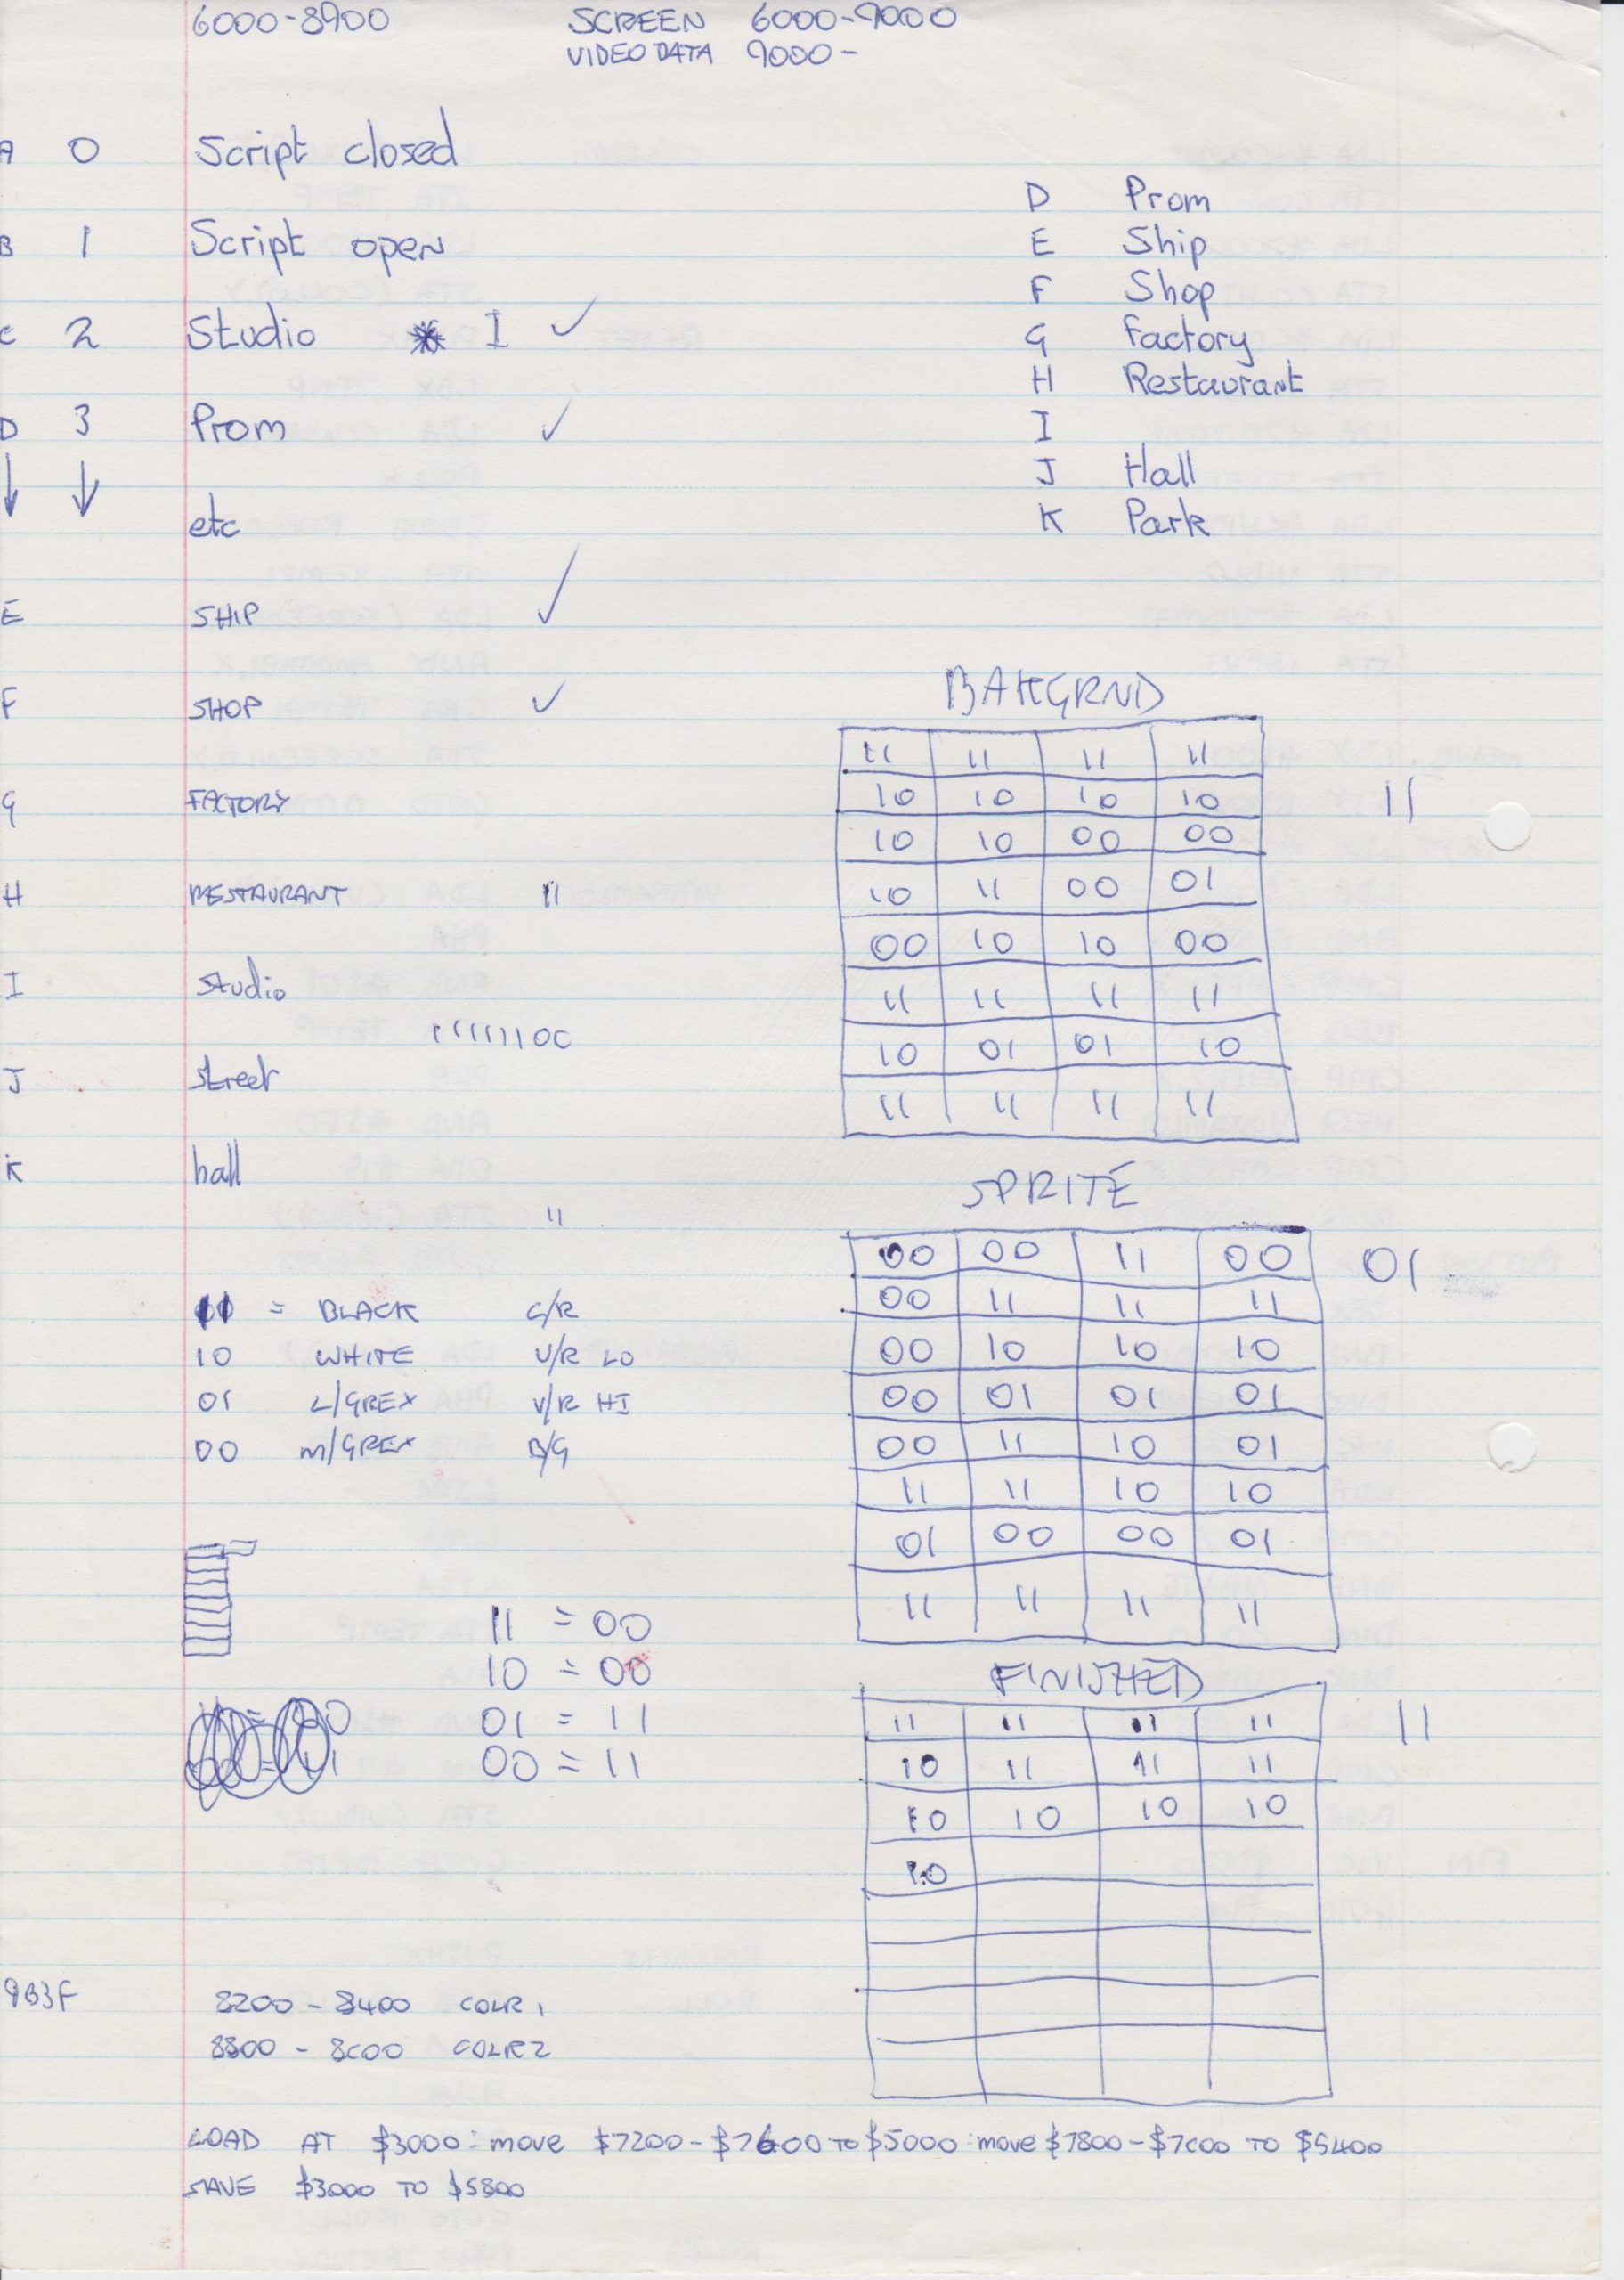 6000-8900 SCREEN 6000-9000
VIDEO DATA 9000-
A 0 Script closed
B 1 Script open
C 2 Studio * I ✓
D 3 Prom ✓
↓ ↓
etc
E SHIP ✓
F SHOP ✓
G FACTORY
H RESTAURANT 11
I Studio
11111100
J street
K hall
11
D Prom
E Ship
F Shop
G Factory
H Restaurant
I
J Hall
K Park
BAKGRND
11 11 11 11
10 10 10 10 11
10 10 00 00
10 11 00 01
00 10 10 00
11 11 11 11
10 01 01 10
11 11 11 11
SPRITE
00 00 11 00 01
00 11 11 11
00 10 10 10
00 01 01 01
00 11 10 01
11 11 10 10
01 00 00 01
11 11 11 11
FINISHED
11 11 11 11 11
10 11 11 11
10 10 10 10
10
11 = BLACK C/R
10 WHITE V/R LO
01 L/GREY V/R HI
00 M/GREY B/G
11 = 00
10 = 00
01 = 11
00 = 11
963F 8200 - 8400 COLR 1
8800 - 8C00 COLR 2
LOAD AT $3000 : move $7200 - $7600 TO $5000 : move $7800 - $7C00 TO $5400
SAVE $3000 TO $5800